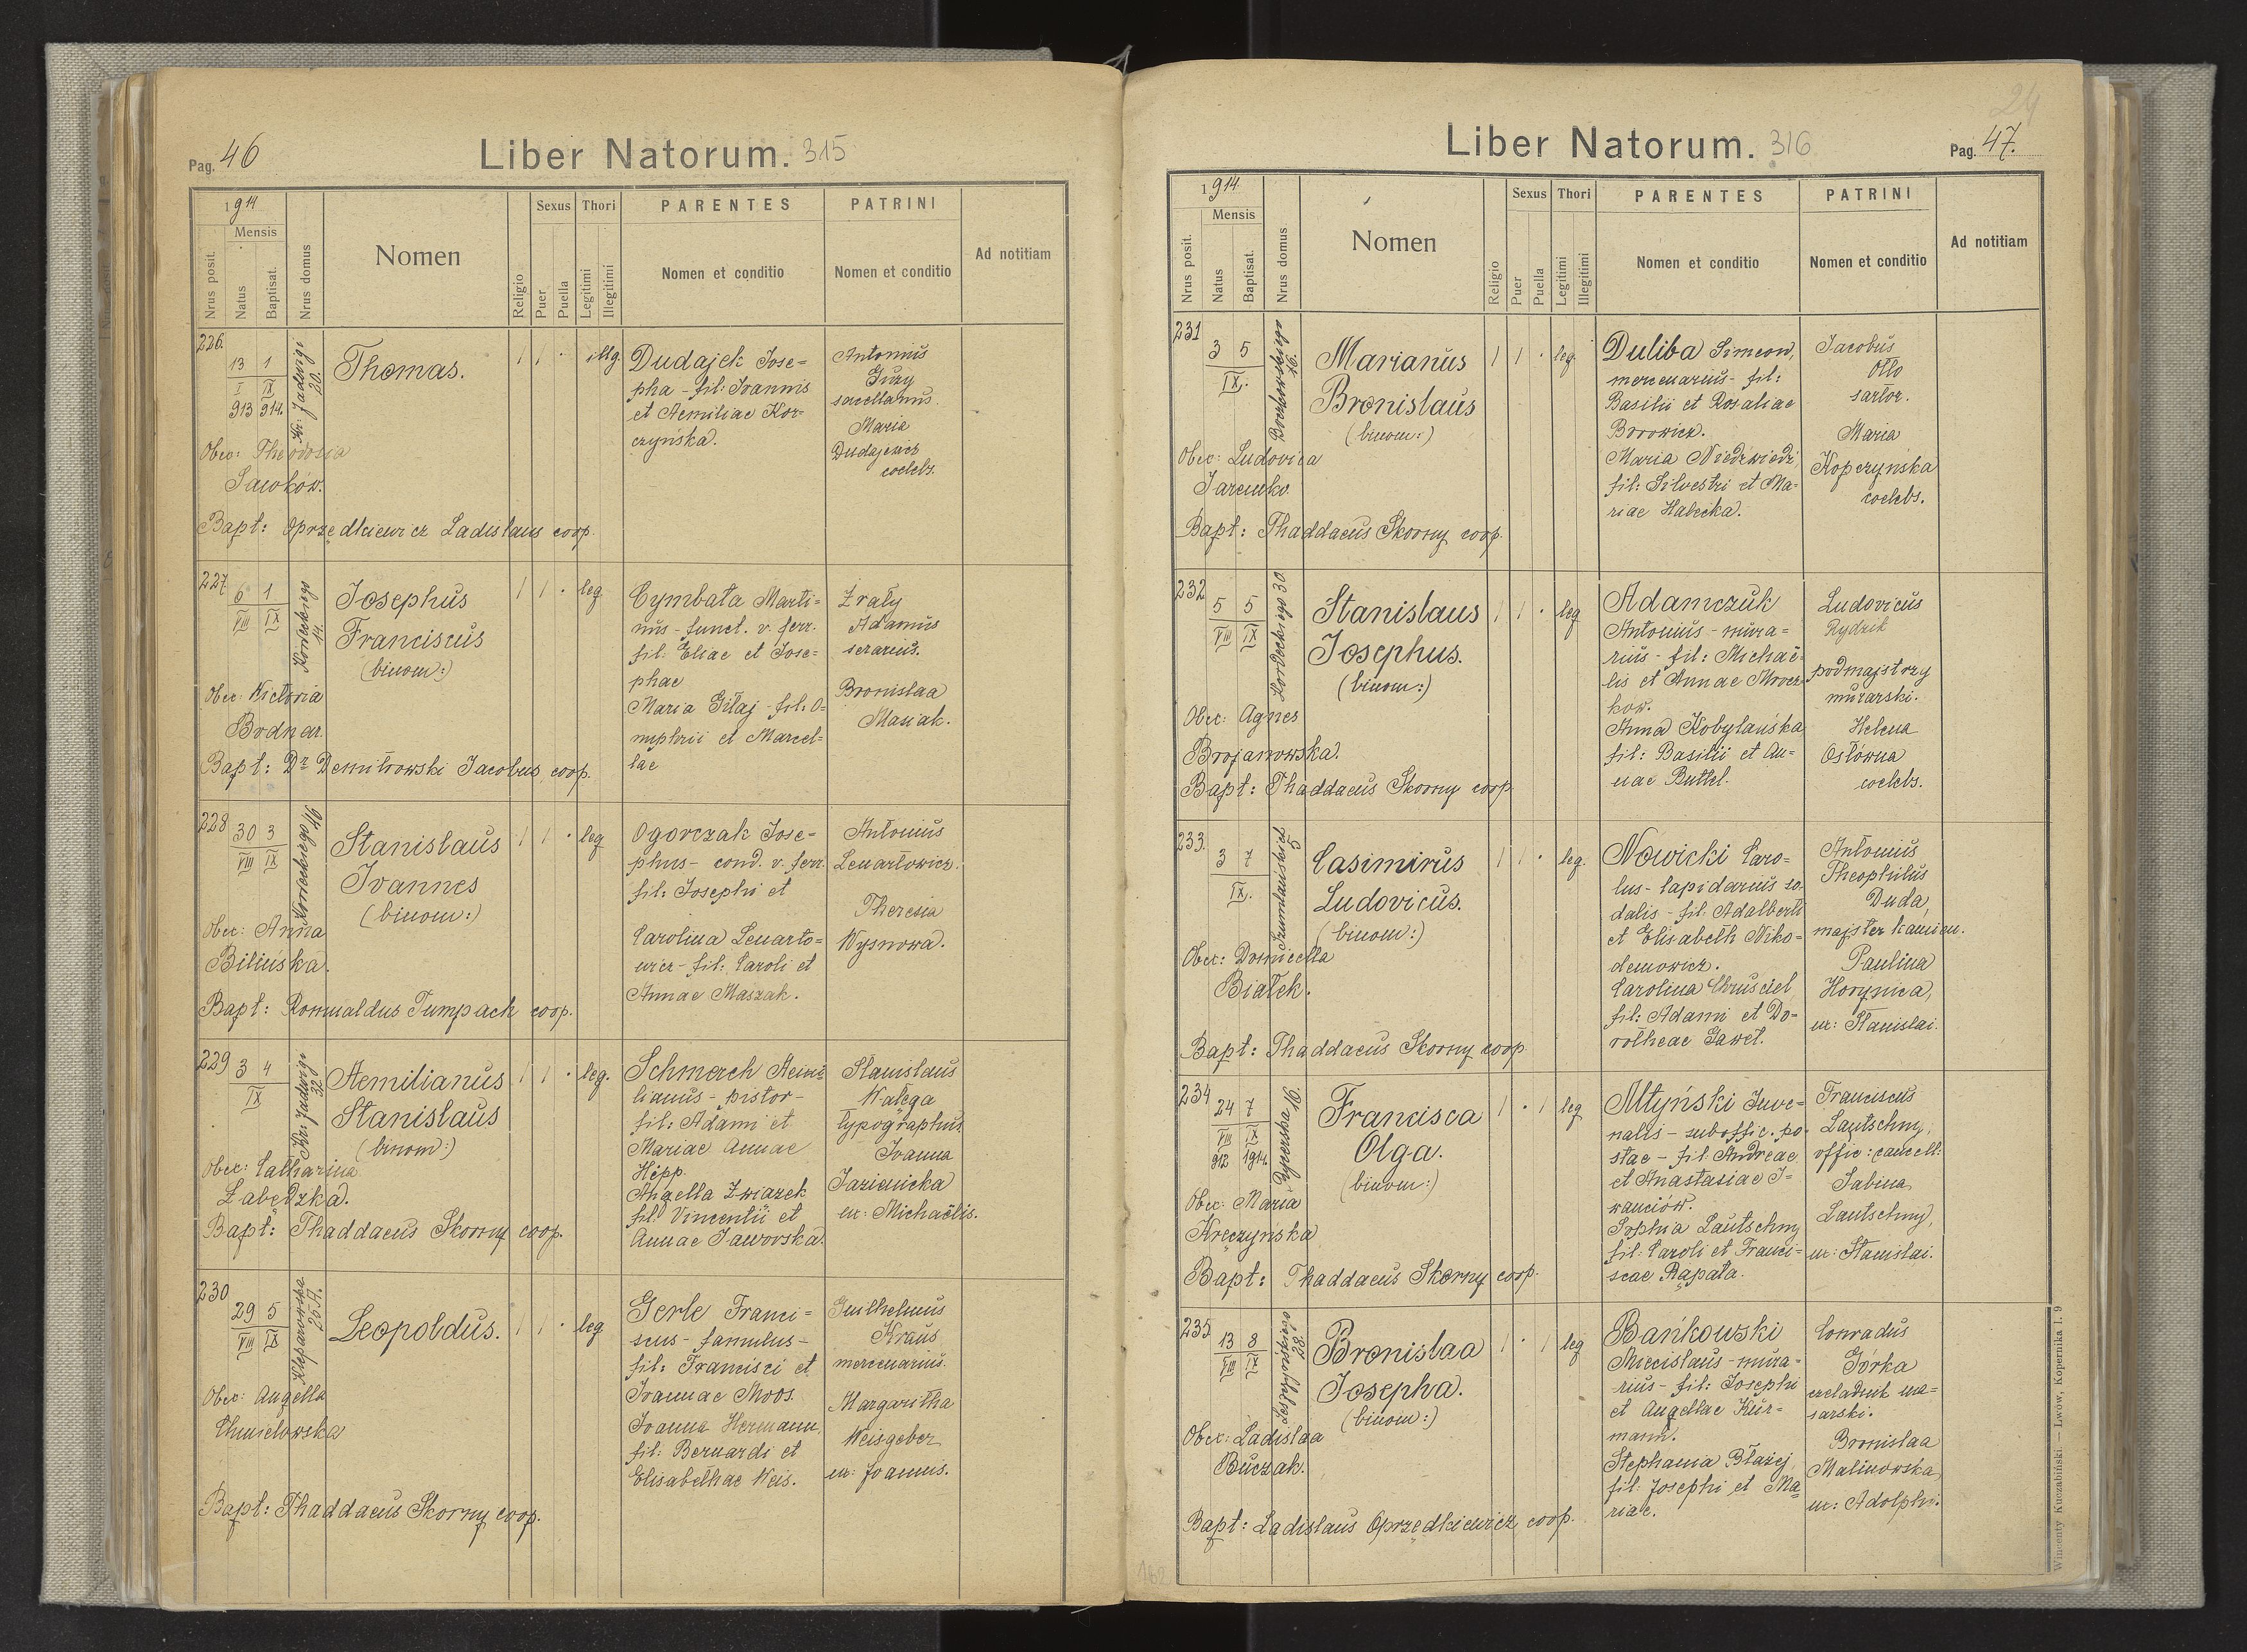 Pag. 46
Liber Natorum. 315
1914
Nrus posit.
Mensis
Natus
Baptisat.
Nrus domus
Nomen
Religio
Sexus
Puer
Puella
Thori
Legitimi
Illegitimi
PARENTES
Nomen et conditio
PATRINI
Nomen et conditio
Ad notitiam
226.
13 1
I IX
913 914.
Kr. Jadwigi
30.
Thomas.
1 1 · illg.
Dudajek Jose=
pha - fil: Ivannis
et Aemiliae Kor=
czyńska.
Antonius
Guzy
sacellanus
Maria
Dudajewicz
coelebs.
Obec: Theodosia
Sawków.
Bapt: Oprzędkiewicz Ladislaus coop.
227.
6 1
VIII IX
Kordeckiego
14.
Josephus
Franciscus
(binom:)
1 1 · leg
Cymbała Marti=
nus - funct. v. ferr.
fil. Eliae et Jose=
phae
Maria Gilaj - fil: O=
nuphrii et Marcel=
lae
Zrały
Adamus
serarius.
Bronislaa
Masiak.
Obec: Victoria
Bodnar
Bapt: Dr Demitrowski Jacobus coop.
228
30 3
VIII IX
Kordeckiego 46
Stanislaus
Ivannes
(binom:)
1 1 · leg
Ogorczak Jose=
phus - cond. v. ferr.
fil: Josephi et
Carolina Lenarto=
wicz - fil: Caroli et
Annae Maszak.
Antonius
Lenartowicz.
Theresia
Wysnowa.
Obec: Anna
Bilinska.
Bapt: Romualdus Tumpach coop.
229
3 4
IX
Kr: Jadwigi
32.
Aemilianus
Stanislaus
(binom:)
1 1 · leg.
Schmerch Aemi=
lianus - pistor -
fil: Adami et
Mariae Annae
Hepp.
Angella Zwiazek
fil: Vincentii et
Annae Jaworska.
Stanislaus
Wałęga
typographus
Ivanna
Jazienicka
ux: Michaëlis.
Obec: Catharina
Łabędzka.
Bapt: Thaddaeus Skorny coop.
230
29 5
VIII IX
Kleparowska
25A.
Leopoldus.
1 1 · leg
Gerle Franci=
scus - famulus -
fil: Francisci et
Ivannae Moos.
Ivanna Hermann,
fil: Bernardi et
Elisabethae Weis.
Guilhelmus
Kraus
mercenarius.
Margaritha
Weisgeber
ux: Joannis.
Obec: Angella
Chmielowska
Bapt: Thaddaeus Skorny coop.
24
Liber Natorum. 316
Pag. 47.
1914
Nrus posit.
Mensis
Natus
Baptisat.
Nrus domus
Nomen
Religio
Sexus
Puer
Puella
Thori
Legitimi
Illegitimi
PARENTES
Nomen et conditio
PATRINI
Nomen et conditio
Ad notitiam
231
3 5
IX.
Boczkowskiego
16.
Marianus
Bronislaus
(binom:)
1 1 · leg.
Duliba Simeon,
mercenarius - fil:
Basilii et Rosaliae
Borowicz.
Maria Niedzwiedz
fil: Silvestri et Ma=
riae Habecka.
Jacobus
Otto
sartor.
Maria
Kopczyńska
coelebs.
Obec: Ludovica
Jaremko
Bapt: Thaddaeus Skorny coop.
232
5 5
VIII IX
Kordeckiego 30
Stanislaus
Josephus.
(binom:)
1 1 · leg
Adamczuk
Antonius - mura=
rius - fil: Michaë=
lis et Annae Mrocz=
kow.
Anna Kobylańska
fil: Basilii et An=
nae Buttel.
Ludovicus
Rydzik
podmajstrzy
murarski.
Helena
Osłowna
coelebs.
Obec: Agnes
Brojanowska.
Bapt: Thaddaeus Skorny coop
233.
3 7
IX.
Szumlańskich
5
Casimirus
Ludovicus.
(binom:)
1 1 · leg.
Nowicki Caro=
lus - lapidarius so=
dalis - fil: Adalberti
et Elisabeth Niko=
demowicz.
Carolina Chruściel
fil: Adami et Do=
rotheae Gaweł.
Antonius
Theophilus
Duda,
majster kamien.
Paulina
Horynica,
ux: Stanislai.
Obec: Domicella
Białek.
Bapt: Thaddaeus Skorny coop
234
24 7
VIII IX
912 1914.
Rycerska 16.
Francisca
Olga.
(binom:)
1 · 1 leg
Młyński Juve=
nalis - suboffic. po=
stae - fil Andreae
et Anastasiae I=
wanciów.
Sophia Lautschny
fil: Caroli et Franci=
scae Rąpała.
Franciscus
Lautschny,
offic: cancell:
Sabina
Lautschny,
ux: Stanislai.
Obec: Maria
Kręczyńska
Bapt: Thaddaeus Skorny coop.
235
13 8
VIII IX
28.
Bronislaa
Josepha.
(binom:)
1 · 1 leg
Bańkowski
Miecislaus - mura=
rius - fil: Josephi
et Angellae Kur=
mann.
Stephania Błażej,
fil: Josephi et Ma=
riae.
Conradus
Górka
czeladnik ma=
sarski.
Bronislaa
Malinowska,
ux: Adolphi.
Obec: Ladislaa
Buczak.
Bapt: Ladislaus Oprzędkiewicz coop.
Wincenty Kuczabiński — Lwów, Kopernika l. 9